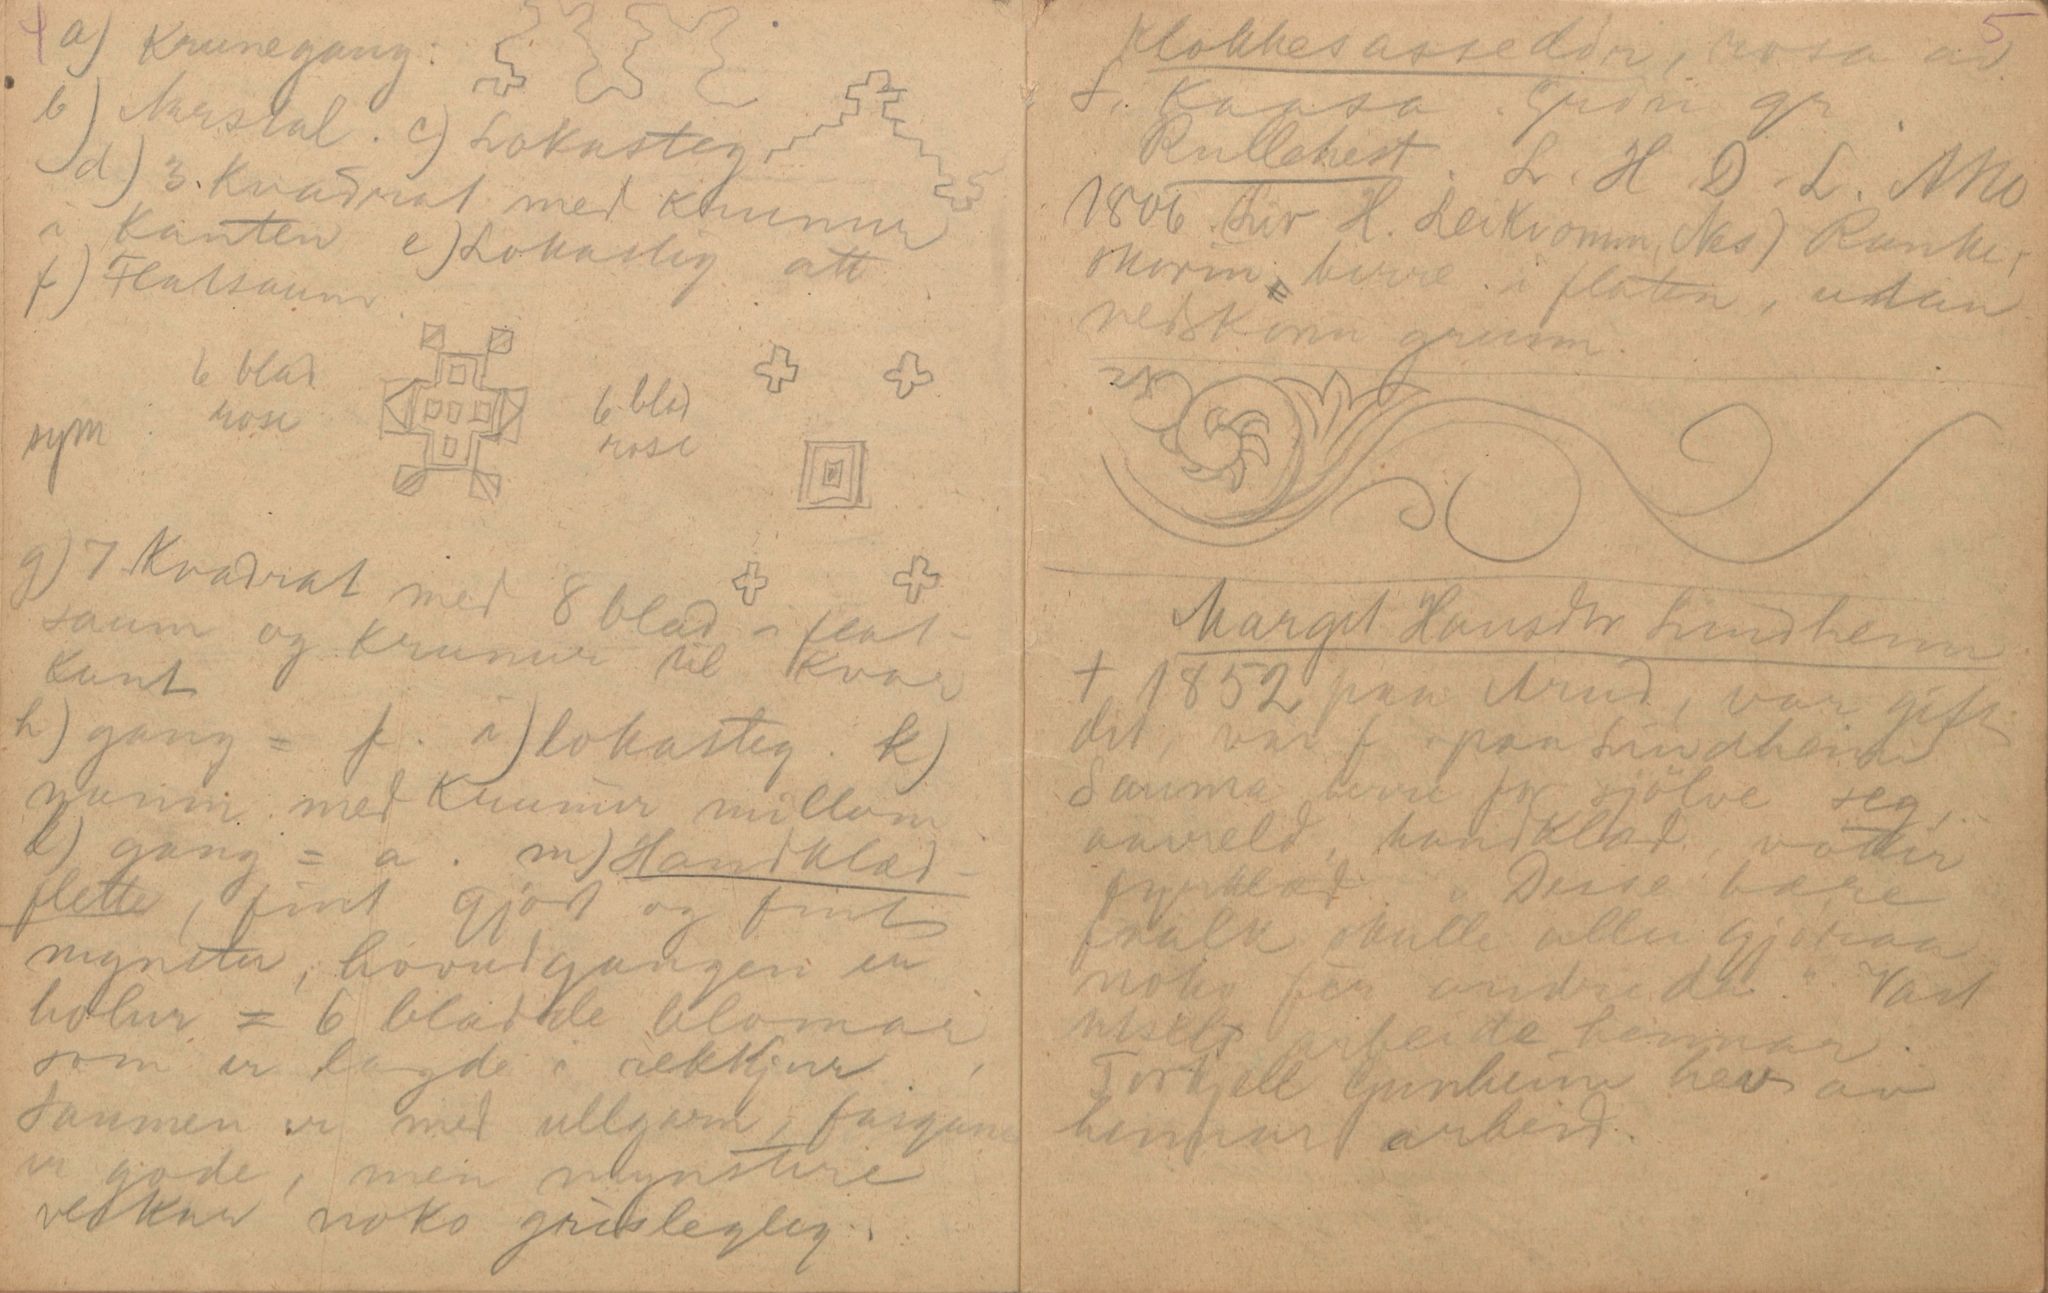 4
a) Krunegang:
b) Nerstal. c) Lokasteg
d) 3 Kvadrat med Krunur
i Kanten e) Lokasteg att
f) Flatsaum.
6 blad
rose
6 blad
rose
sym
g) 7 Kvadrat med 8 blad i flat-
saum og Krunur til kvar
Kant
h) gang = f. i) lokasteg. k)
med Krunur millom
l) gang = a. m) Handklæd-
flette, fint gjort og fint
mynster, hovudgangen er
bolur = 6 bladde blomar,
som er lagde i rekkjur
Saumen er med ullgarn, fargane
er gode, men mynstere
verkar noko grislegleg.
5
Klokkesassedör, rosa av
S. Kaasa. Grön gr
Rullehest. L. H D. L. ANo
1806. Liv H. Leikvomm, Nes) Ranke,
skorin berre i flaten, utan
nedskorin grunn.
Margit Hansdtr Lindheim
† 1852 paa Arud, var gift
der, var f. paa Lindheim
Sauma berre for sjölve seg,
aavreld, handklæd, vottir
fyreklæd. " Desse bære
fralk skulle aller gjöraa
noko fer andre da." Vart
utselt arbeide hennar.
Torkjell Gunheim hev av
hennar arbeid.